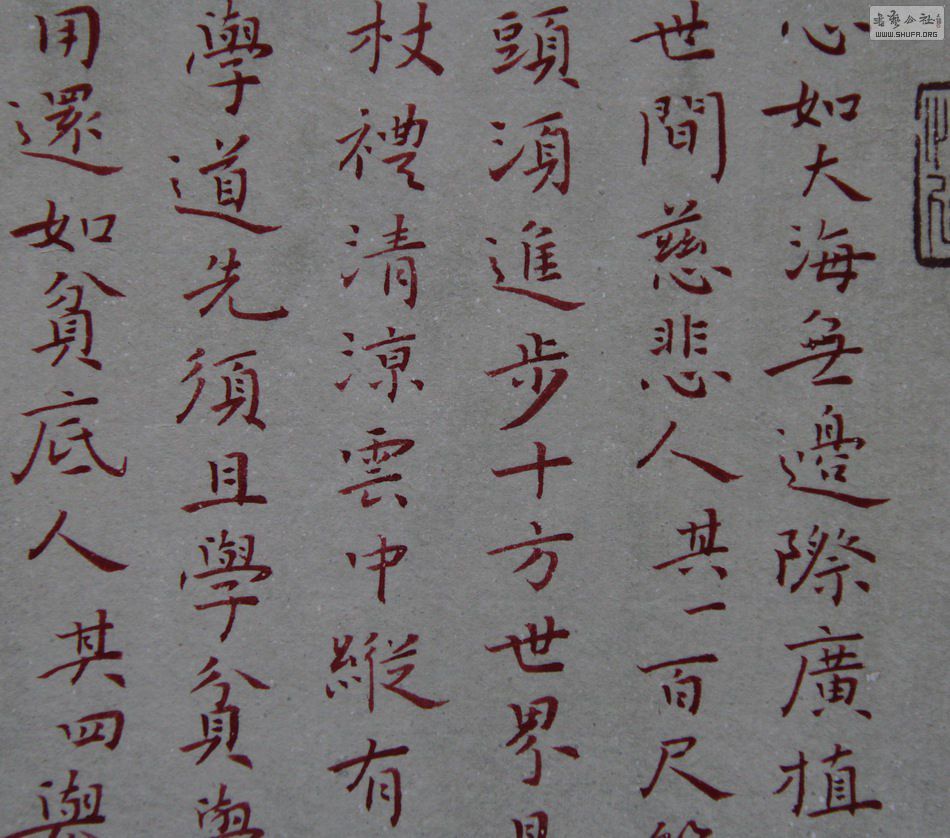 心如大海無邊際廣植
世間慈悲人其一百尺
頭須進步十方世界
杖禮清涼雲中縱有
學道先須且學貧學
用還如貧底人其四
書藝公社
WWW.SHUFA.ORG